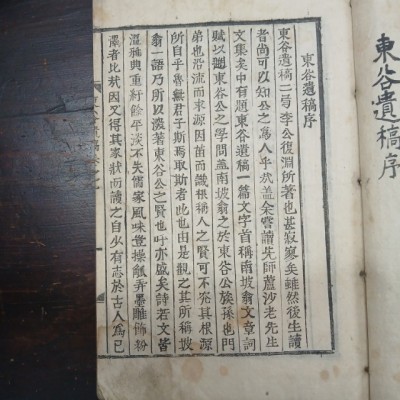 東谷遺稿序
東谷遺稿序
東谷遺稿二弓李公復淵所著也甚寂寥矣雖然後生讀
者尚可以知公之爲人乎哉盖余嘗讀先師蘆沙老先生
文集矣中有題東谷遺稿一篇文字首稱南坡翁文章詞
賦以題東谷公之學問盖南坡翁之於東谷公族孫也門
弟也沿流而求源因苗而識根稱人之賢可不究其根源
所自乎魯無君子斯焉取斯者此也由是觀之其所稱坡
翁一語乃所以深著東谷公之賢也吁亦盛矣詩若文皆
溫雅典重紆餘平淡不失儒家風味豈操觚弄墨雕飾粉
澤者比哉因又得其家狀而讀之自少有志於古人爲己